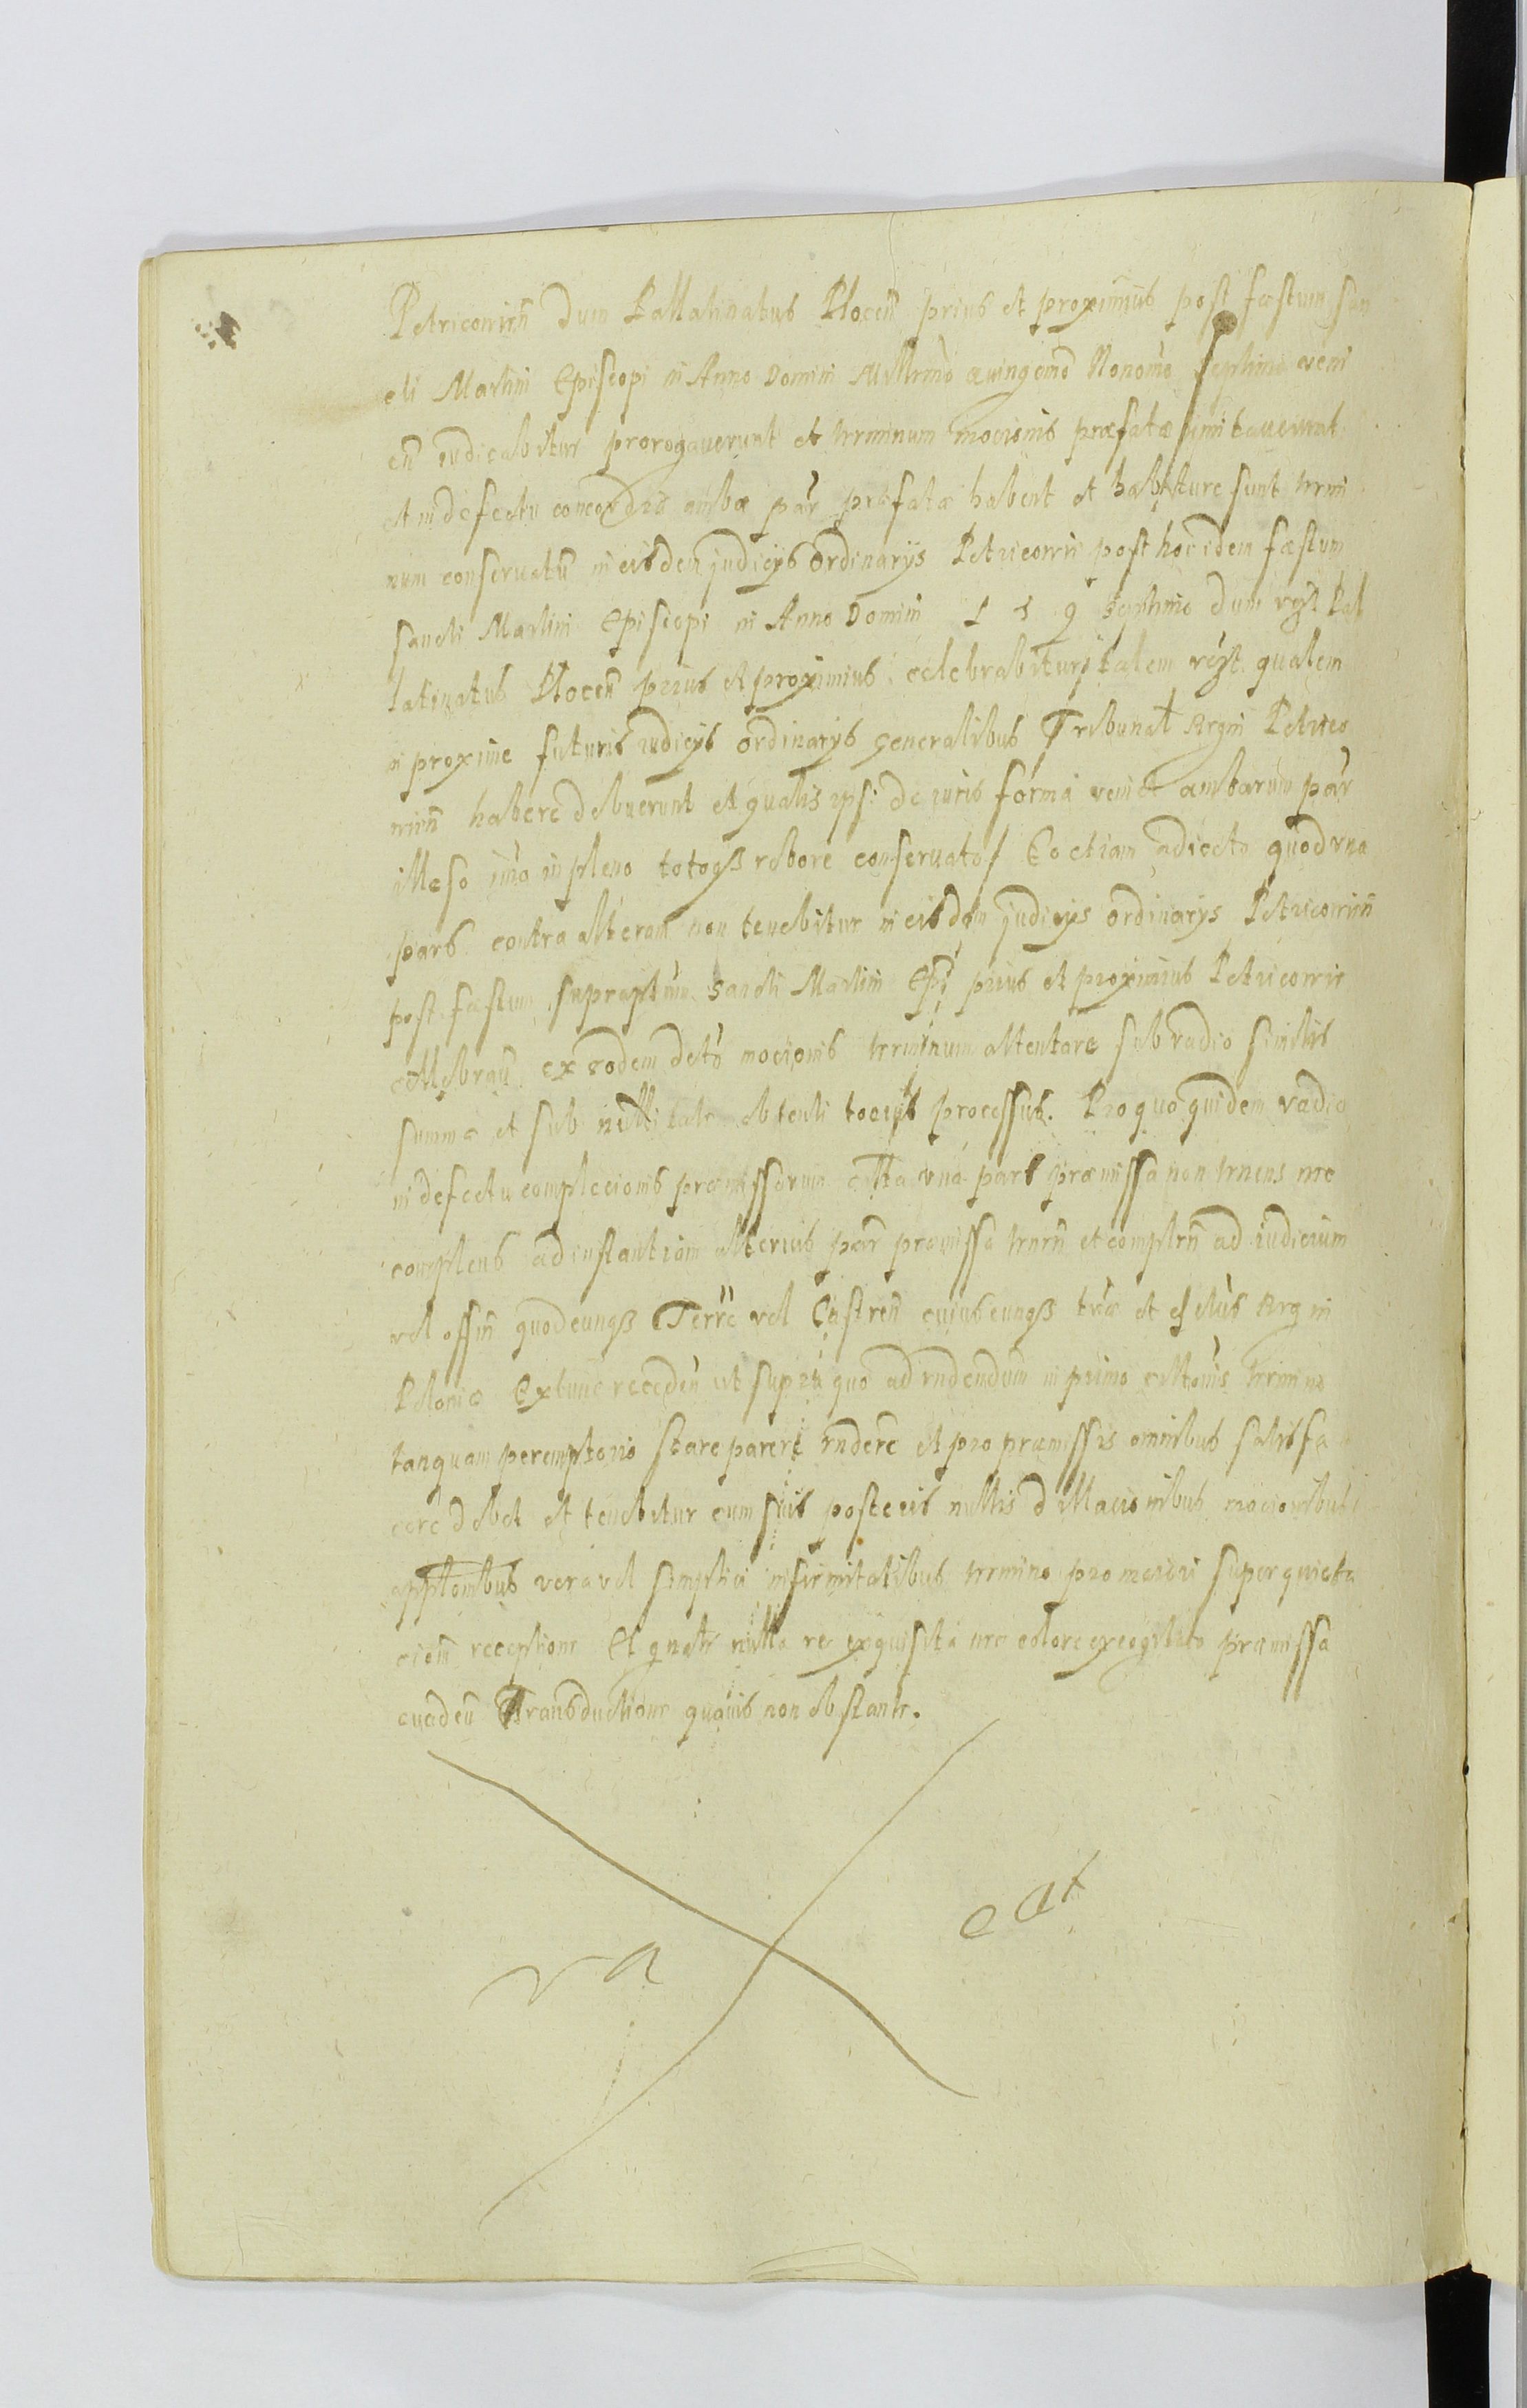 Petricovien̄ dum Pallatinatus Plocen̄ prius et proximius post fæstum san
cti Martini Episcopi in Anno Domini Millmo quingemo Nonomo septimo veni
en̄ iudicabitur prorogauerunt et terminum mocionis præfatæ limitauerunt
et in defectu concordiæ ambæ par præfatæ habent et habituræ sunt termi
num conseruatū in eisdem judicÿs ordinarÿs Petricovien̄ post hoc idem fæstum
Sancti Martini Episcopi in Anno Domini 1 5 9 septimo dum vt Pal
latinatus Plocen̄ prius et proximius celebrabitur, talem qualem
in proxime futuris iudicÿs ordinarÿs generalibus Tribunal Regni Petrico
vien̄ habere debuerunt et qualis ips: de iuris forma veniet ambarum par
illeso imo in pleno totoqꝫ robore conseruato / Eo etiam adiecto quod vna
pars contra alteram non tenebitur in eisdem judicÿs ordinarÿs Petricovien̄
post fæstum supraptum Sancti Martini Epi prius et proximius Petricovie
cellebran̄ ex eodem decto mocionis terminum attentare sub vadio similis
summæ et sub nullitate obtenti tocius processus. Pro quo quidem vadio
in defectu complecionis præmissorum citta vna pars præmissa non tenens nec
complens ad instantiam alterius par præmissa tenen̄ et complen̄ ad iudicium
vel offin̄ quodcunqꝫ Terrē vel Castren̄ cuiuscunqꝫ træ et dctus Regni
Poloniæ Extunc receden̄ ut supra quo ad rndendum in primo cittonis termino
tanquam peremptorio stare parere rndere et pro præmissis omnibus satisfa
cere debet et tenebitur cum suis posteris nullis dillacionibus mocionibus
appllonibus vera vel simplici infirmitatibus termino pro maiori super quieta
cioīn receptione Et gnalr nulla re exquisita nec colore excogitato præmissa
euaden̄ Transductione quauis non obstante.
va cat